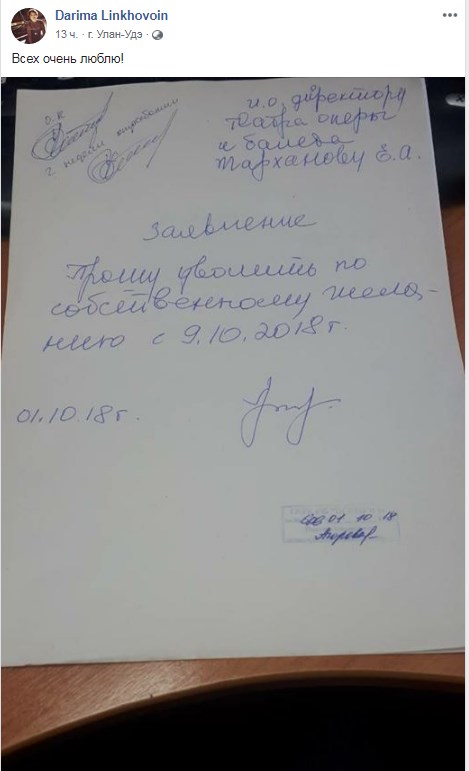 Darima Linkhovoin
13 ч. · г. Улан-Удэ ·
Всех очень люблю!
О.К
2 недели отработки
и.о. директору
театра оперы
и балета
Тарханову Е.А.
Заявление
Прошу уволить по
собственному жела-
нию с 9.10.2018г.
01.10.18г.
01 10 18